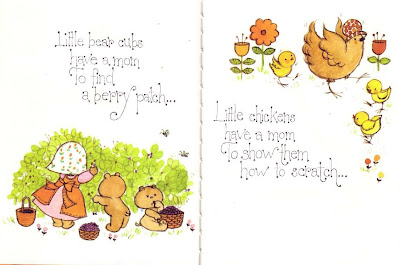 Little bear cubs
have a mom
To find
a berry patch...
Little chickens
have a mom
To show them
how to scratch...